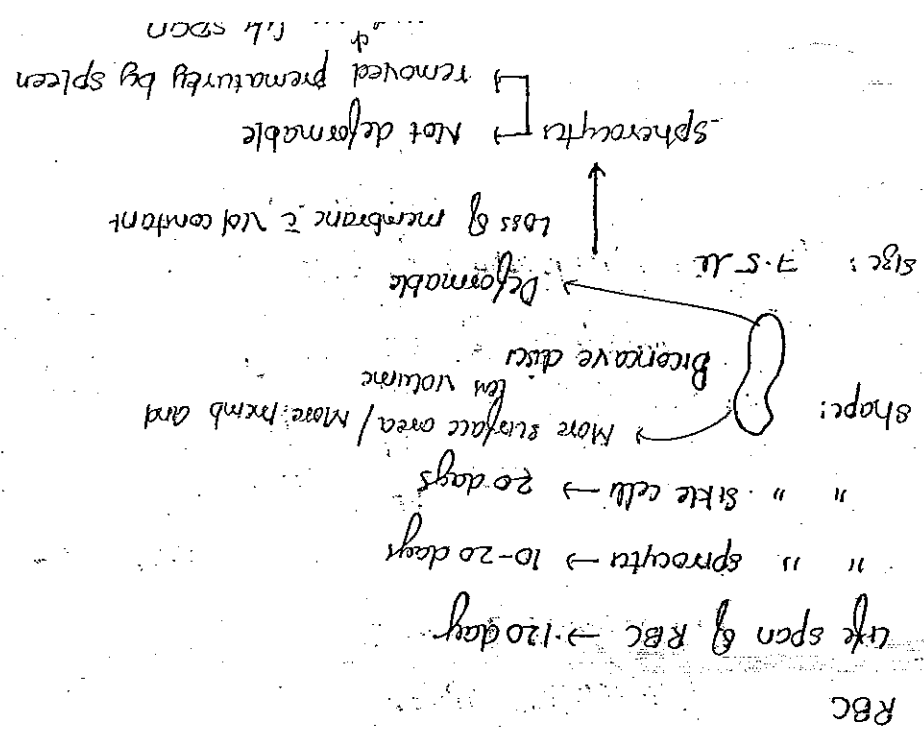 RBC
Life span of RBC → 120 days
" " spirocytes → 10-20 days
" " Sikle cells → 20 days
shape: → More surface area / More memb and
less volume
Biconcave discs
Deformable
size: 7.5 µ
Loss of membrane c̄ Vol constant
Spherocytes → Not deformable
→ removed prematurely by spleen
life span